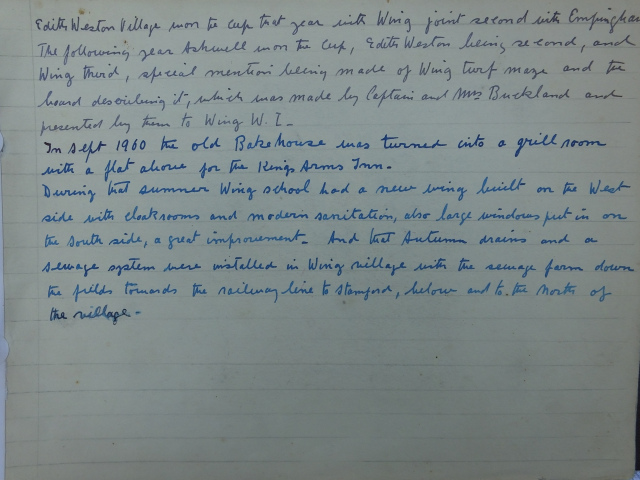 Edith Weston Village won the cup that year with Wing joint second with Empingham
The following year Ashwell won the Cup, Edith Weston being second, and
Wing third, special mention being made of Wing turf maze and the
board describing it, which was made by Captain and Mrs Buckland and
presented by them to Wing W.I.-
In Sept 1960 the old Bakehouse was turned into a grill room
with a flat above for the Kings Arms Inn.-
During that summer Wing school had a new wing built on the West
side with cloakrooms and modern sanitation, also large windows put in on
the South side, a great improvement- And that Autumn drains and a
sewage system were installed in Wing village with the sewage farm down
the fields towards the railway line to Stamford, below and to the North of
the village.-